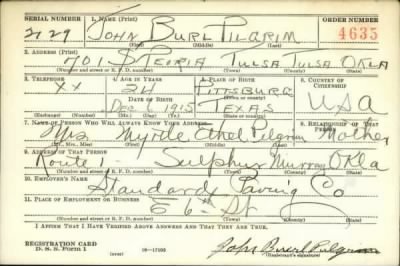 SERIAL NUMBER 1. NAME (Print) ORDER NUMBER
2129 JOHN BURL PILGRIM 4635
(First) (Middle) (Last)
2. ADDRESS (Print)
701 S PEORIA TULSA TULSA OKLA
(Number and street or R. F. D. number) (Town) (County) (State)
3. TELEPHONE 4. AGE IN YEARS 5. PLACE OF BIRTH 6. COUNTRY OF CITIZENSHIP
XX 24 PITTSBURG
DATE OF BIRTH
DEC 6, 1915 TEXAS USA
(Exchange) (Number) (Mo.) (Day) (Yr.) (State or country)
7. NAME OF PERSON WHO WILL ALWAYS KNOW YOUR ADDRESS 8. RELATIONSHIP OF THAT PERSON
Mrs Myrtle Ethel Pilgrim Mother
(Mr., Mrs., Miss) (First) (Middle) (Last)
9. ADDRESS OF THAT PERSON
Route 1 - Sulphur Murray Okla
(Number and street or R. F. D. number) (Town) (County) (State)
10. EMPLOYER'S NAME
Standard Paving Co
11. PLACE OF EMPLOYMENT OR BUSINESS
E 6th St
(Number and street or R. F. D. number) (Town) (County) (State)
I AFFIRM THAT I HAVE VERIFIED ABOVE ANSWERS AND THAT THEY ARE TRUE.
REGISTRATION CARD
D. S. S. Form 1 (over) John Burl Pilgrim
(Registrant's signature)